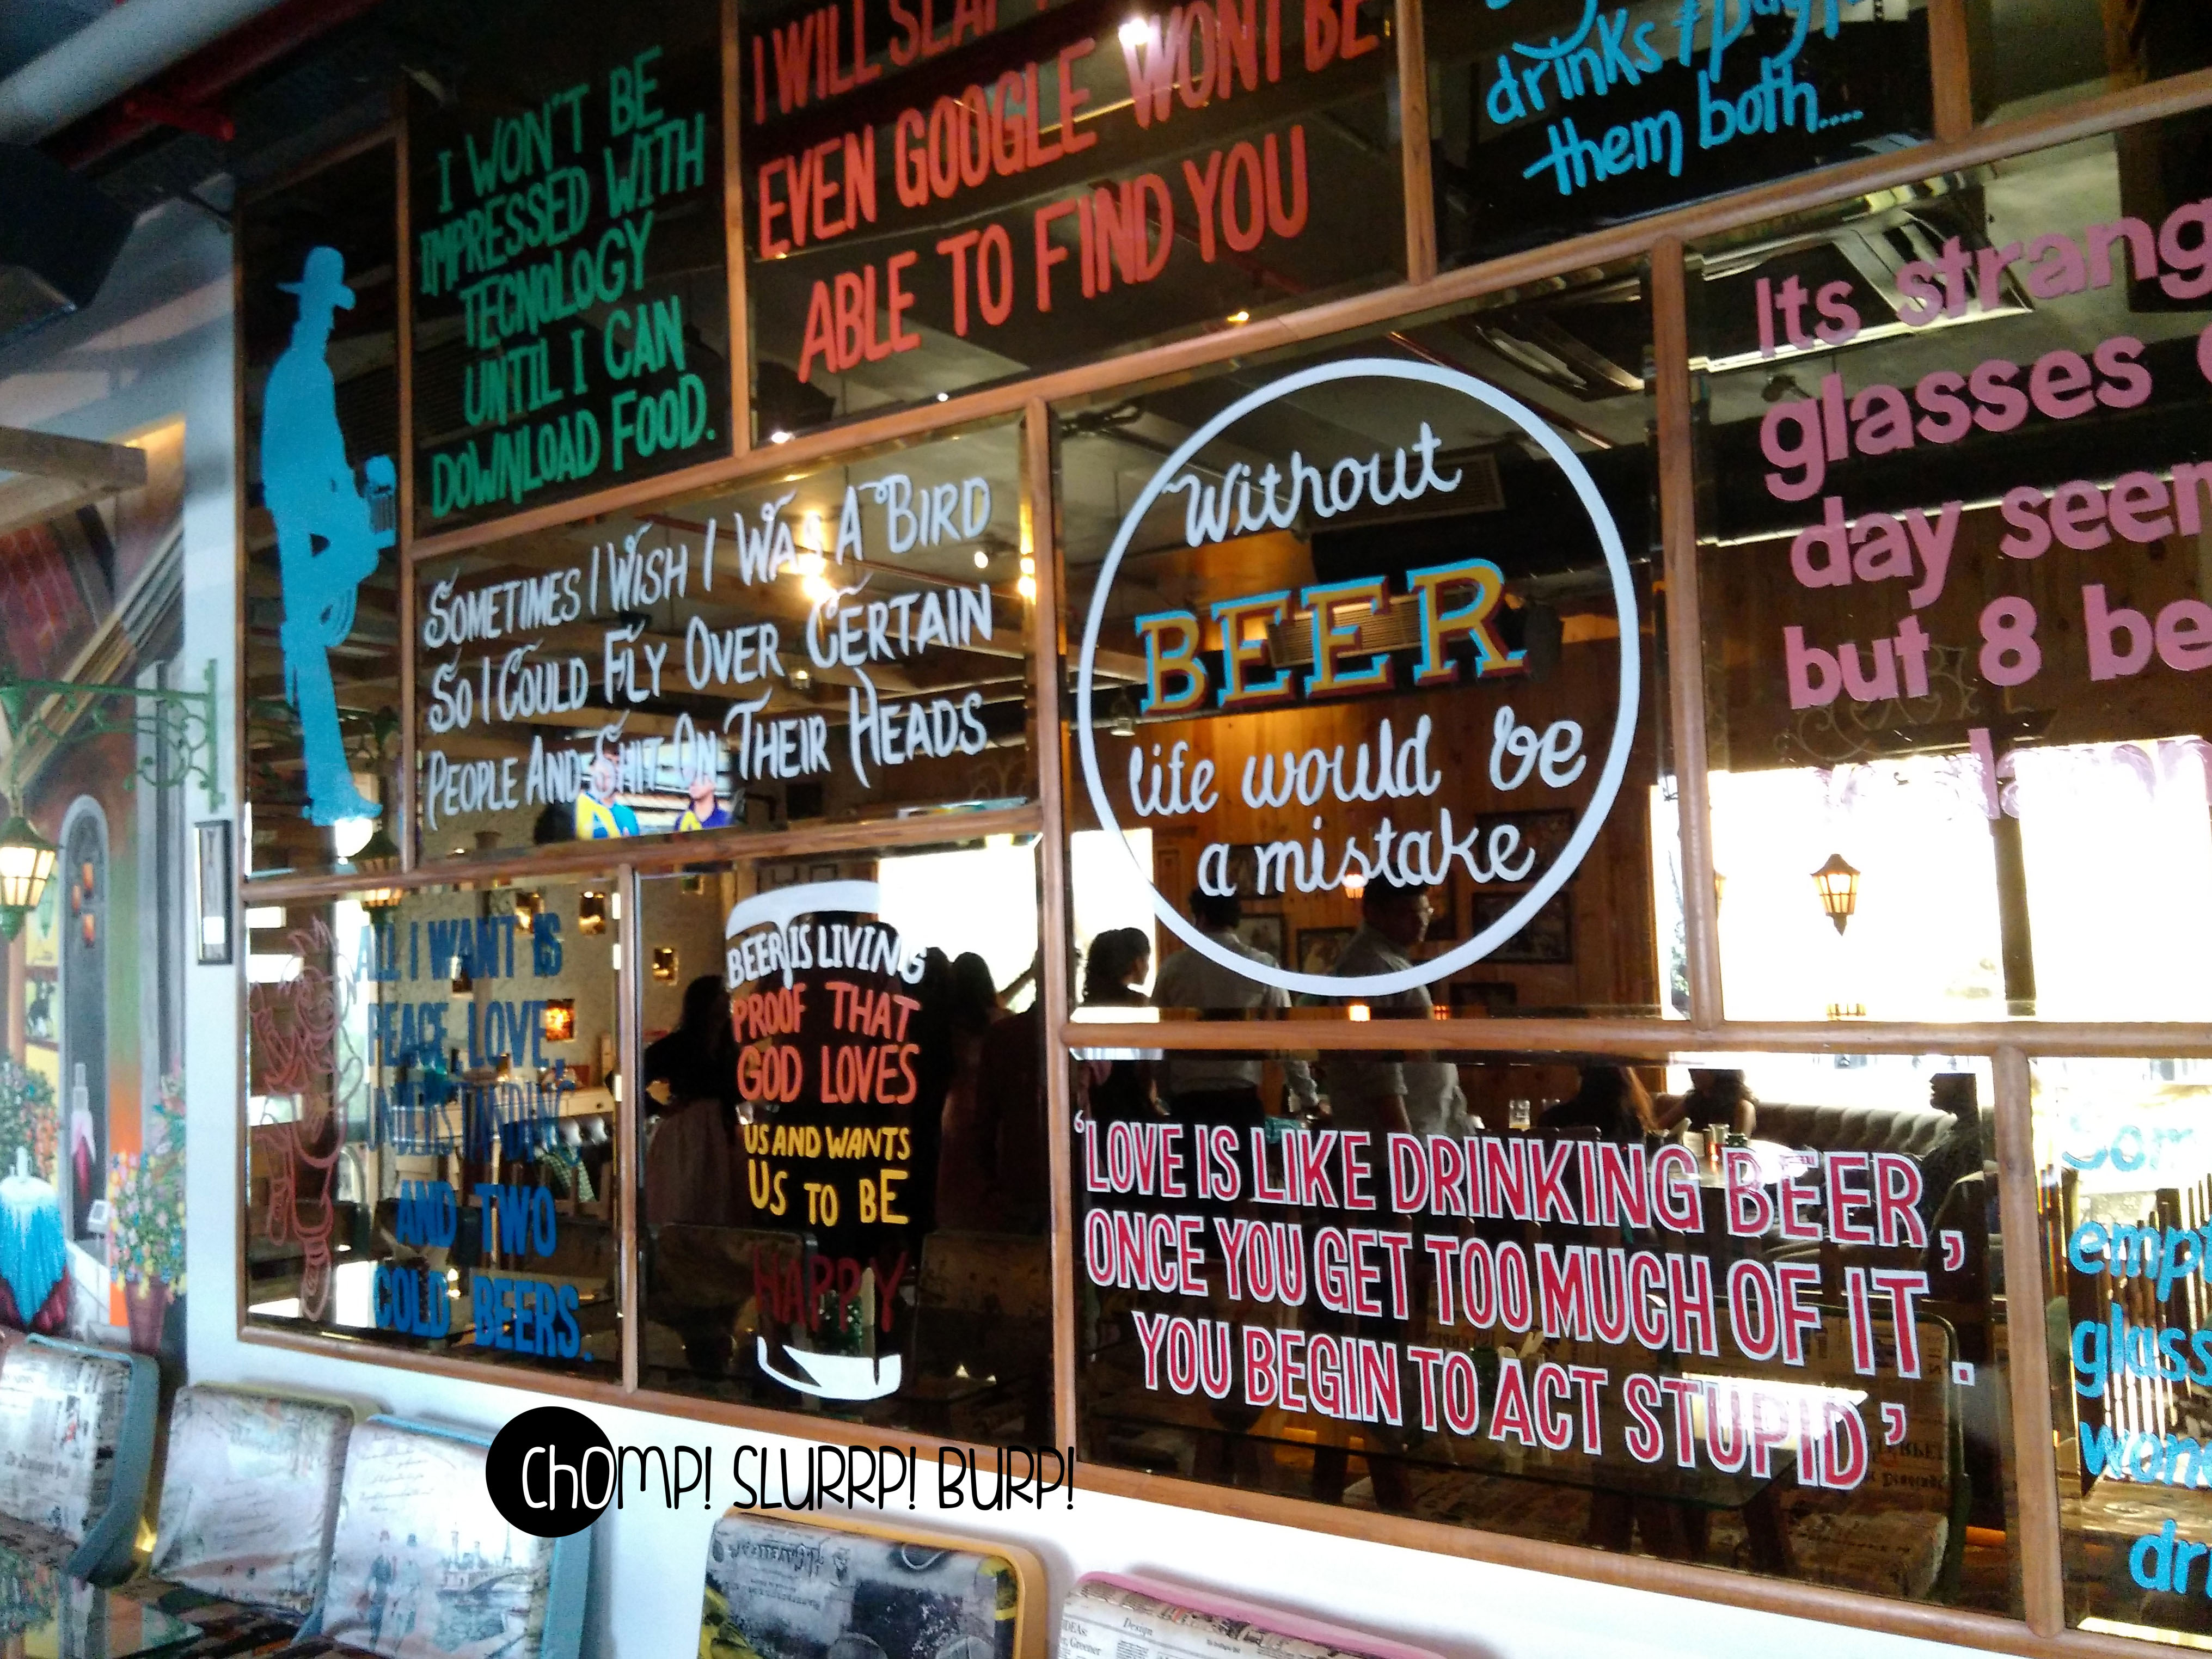 I WON'T BE
IMPRESSED WITH
TECNOLOGY
UNTIL I CAN
DOWNLOAD FOOD.
I WILL
EVEN GOOGLE WONT BE
ABLE TO FIND YOU
drinks
them both....
SOMETIMES I WISH I WAS A BIRD
SO I COULD FLY OVER CERTAIN
PEOPLE AND SHIT ON THEIR HEADS
Without
BEER
life would be
a mistake
Its
glasses
day
but 8
ALL I WANT IS
PEACE, LOVE,
UNDERSTANDING
AND TWO
COLD BEERS.
BEER IS LIVING
PROOF THAT
GOD LOVES
US AND WANTS
US TO BE
HAPPY
'LOVE IS LIKE DRINKING BEER,
ONCE YOU GET TOO MUCH OF IT.
YOU BEGIN TO ACT STUPID'
ChOMP! SLURRP! BURP!
Design